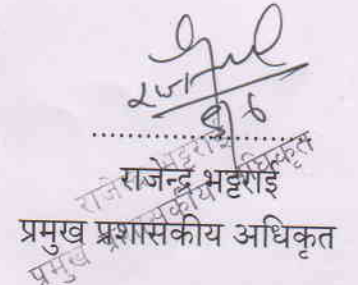 ........................
राजेन्द्र भट्टराई
प्रमुख प्रशासकीय अधिकृत
राजेन्द्र भट्टराई
प्रमुख प्रशासकीय अधिकृत